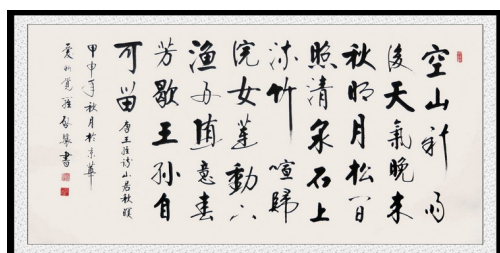 空山新雨
後天氣晚来
秋明月松間
照清泉石上
流竹喧歸
浣女蓮動下
渔舟随意春
芳歇王孙自
可留 唐王維诗山居秋暝
甲申年秋月於京華
爱新覺羅啓驤書